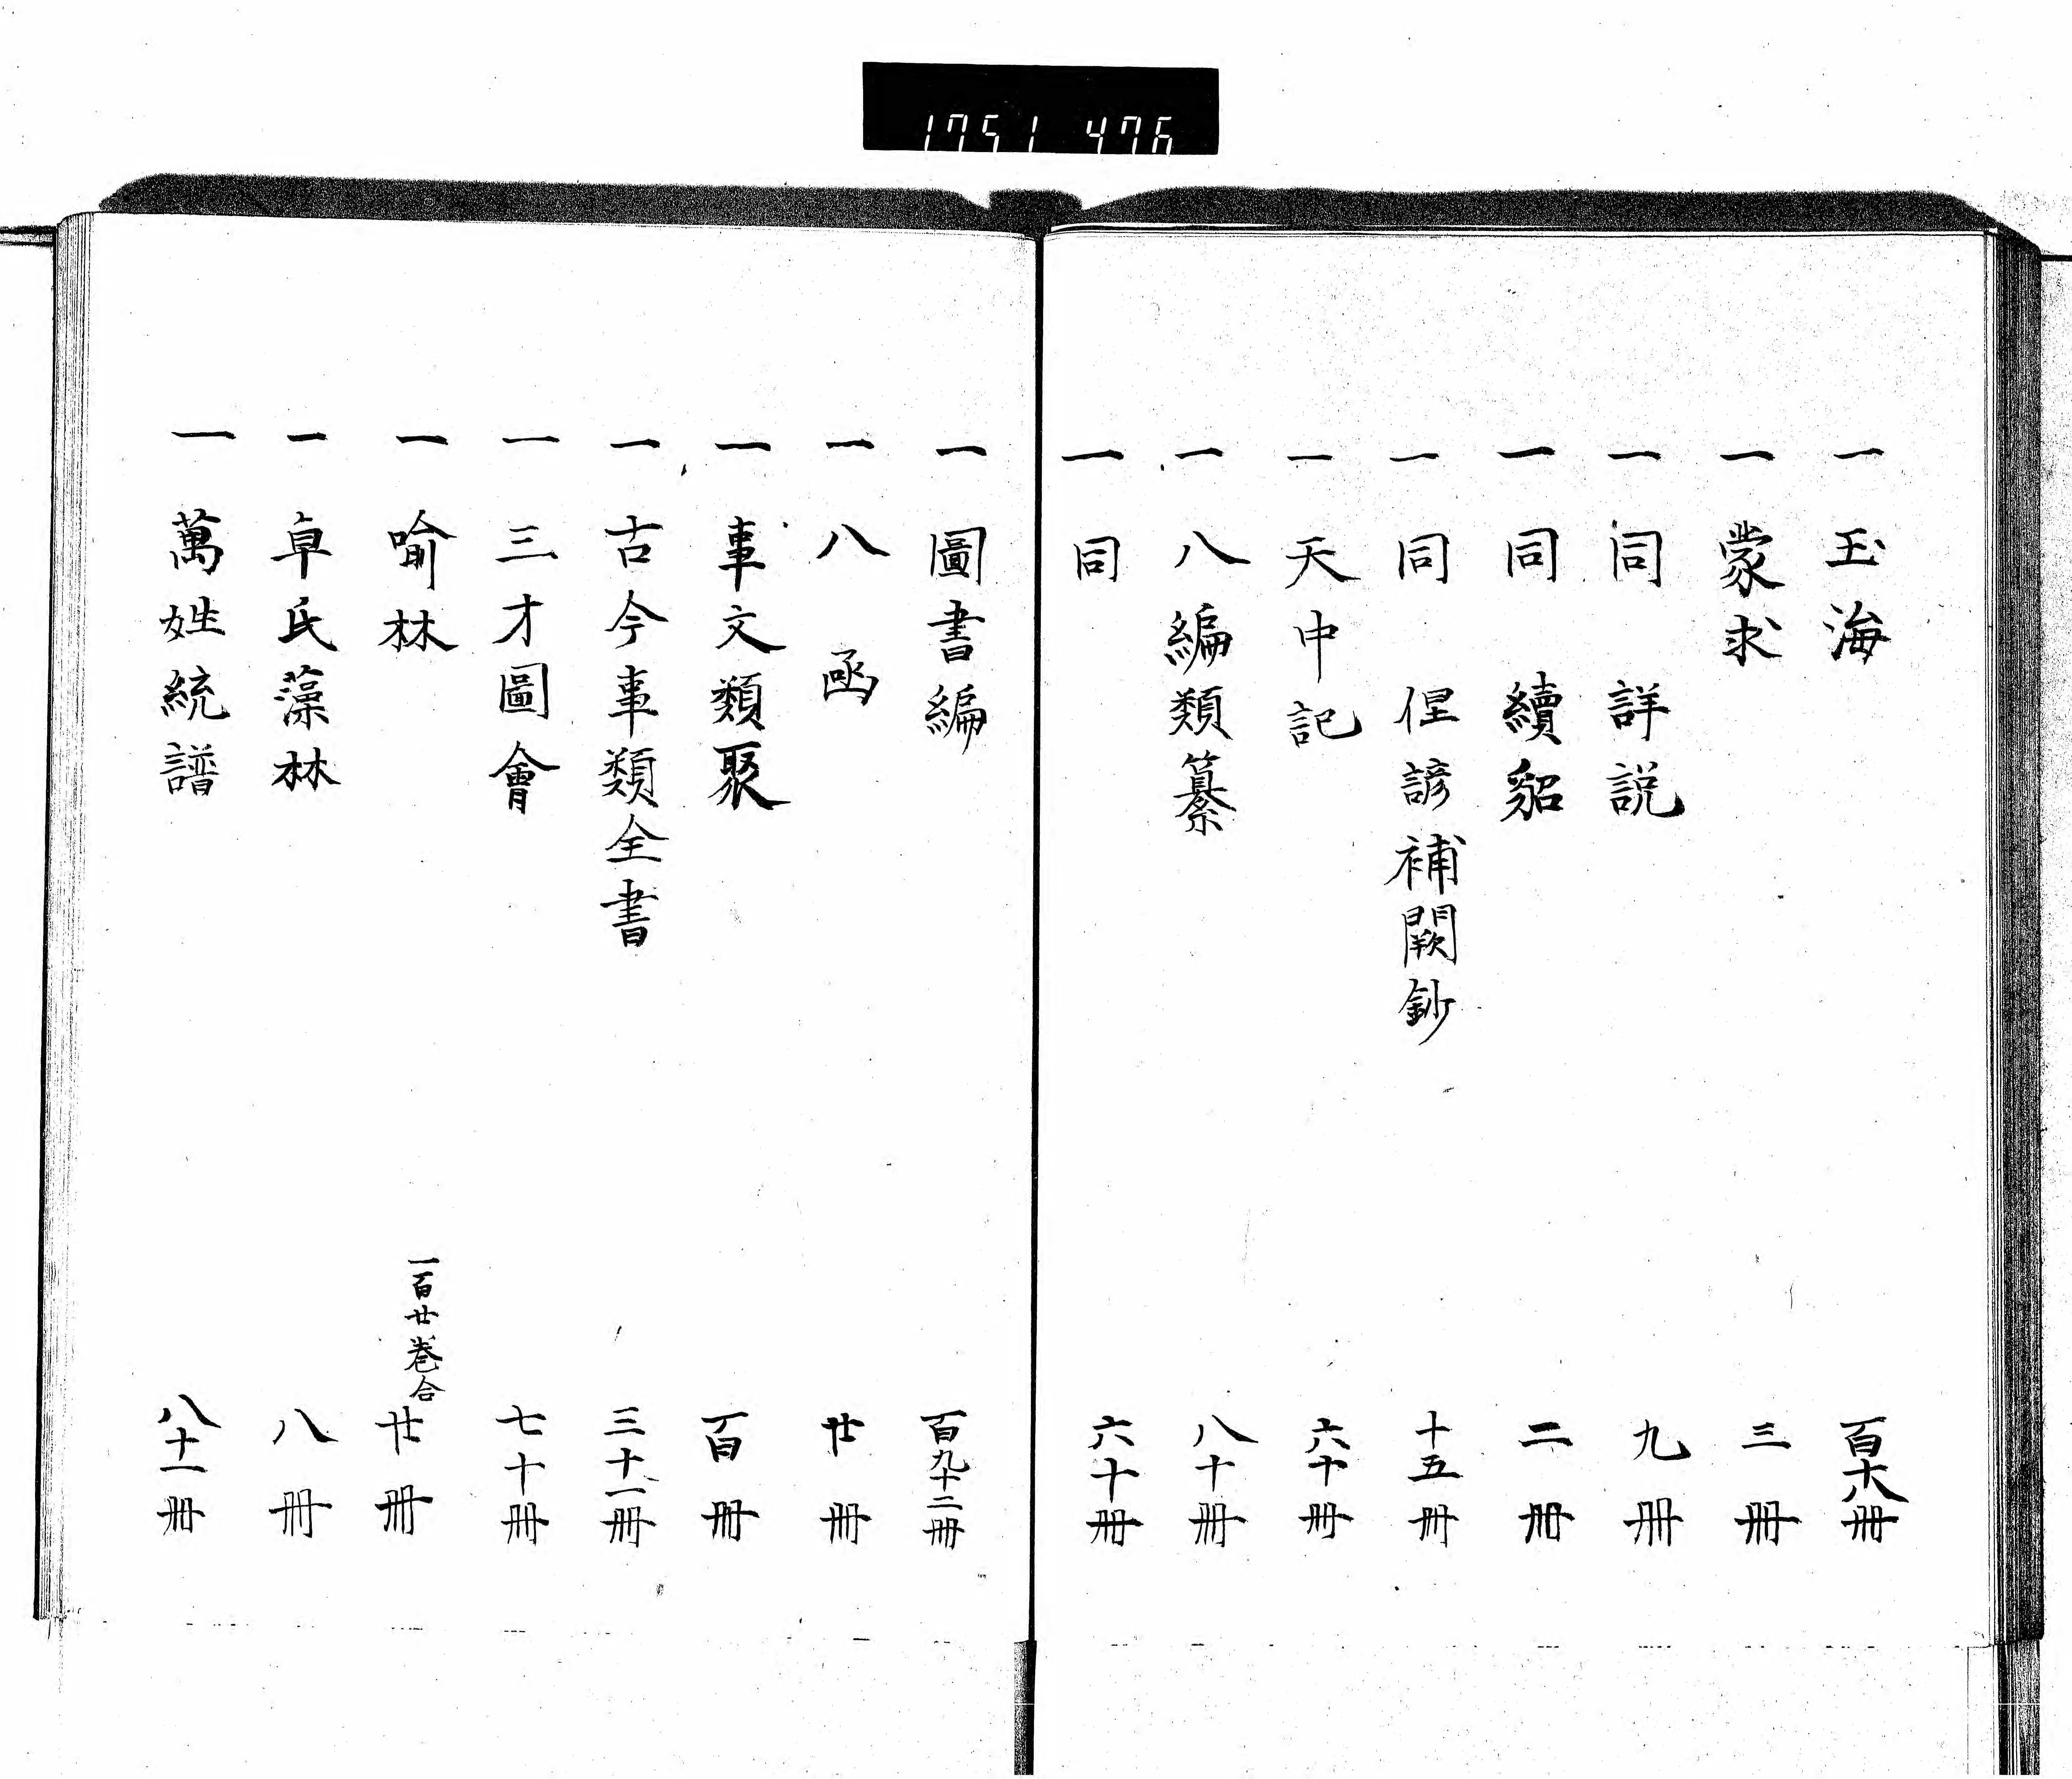 1751 476
一 玉海 百十八冊
一 蒙求 三冊
一 同 詳説 九冊
一 同 續貂 二冊
一 同 俚諺補闕鈔 十五冊
一 天中記 六十冊
一 八編類纂 八十冊
一 同 六十冊
一 圖書編 百九十二冊
一 八函 廿冊
一 事文類聚 百冊
一 古今事類全書 三十一冊
一 三才圖會 七十冊
一 喻林 一百廿卷合 廿冊
一 卓氏藻林 八冊
一 萬姓統譜 八十一冊